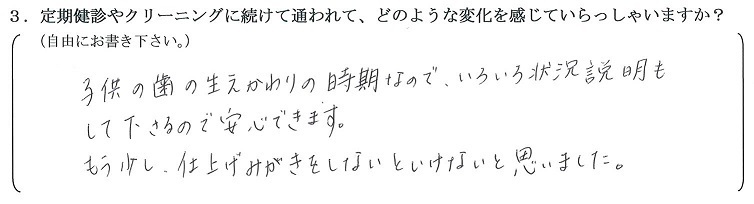 ３．定期健診やクリーニングに続けて通われて、どのような変化を感じていらっしゃいますか？
（自由にお書き下さい。）
子供の歯の生えかわりの時期なので、いろいろ状況説明も
して下さるので安心できます。
もう少し、仕上げみがきをしないといけないと思いました。